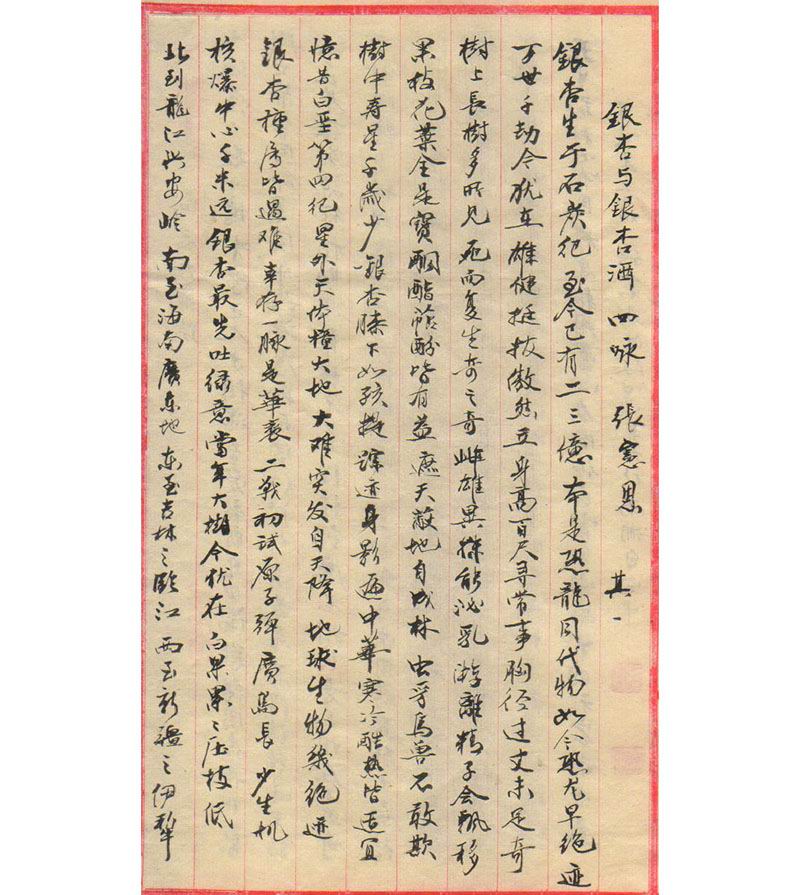 銀杏与銀杏酒 四咏 張憲恩 其一
銀杏生于石炭紀 至今已有二三億 本是恐龍同代物 如今恐龙早绝迹
万世千劫今犹在 雄健挺拔傲然立 身高百尺寻常事 胸径过丈未足奇
樹上長樹多所見 死而复生奇之奇 雌雄異株能泌乳 游離精子会飘移
果枝花葉全是寶 酮酯萜酚皆有益 遮天蔽地自成林 虫孚鳥兽不敢欺
樹中寿星千歲少 銀杏膝下如孩提 踪迹身影遍中華 寒冷酷热皆适宜
憶昔白垩第四纪 星外天体撞大地 大难突发自天降 地球生物幾绝迹
銀杏種属皆遇难 幸存一脉是華裔 二戰初試原子彈 廣島長 少生机
核爆中心千米远 銀杏最先吐绿意 當年大樹今犹在 白果累々压枝低
北到龍江興安岭 南至海南廣东地 东至吉林之 江 西至新疆之伊犁